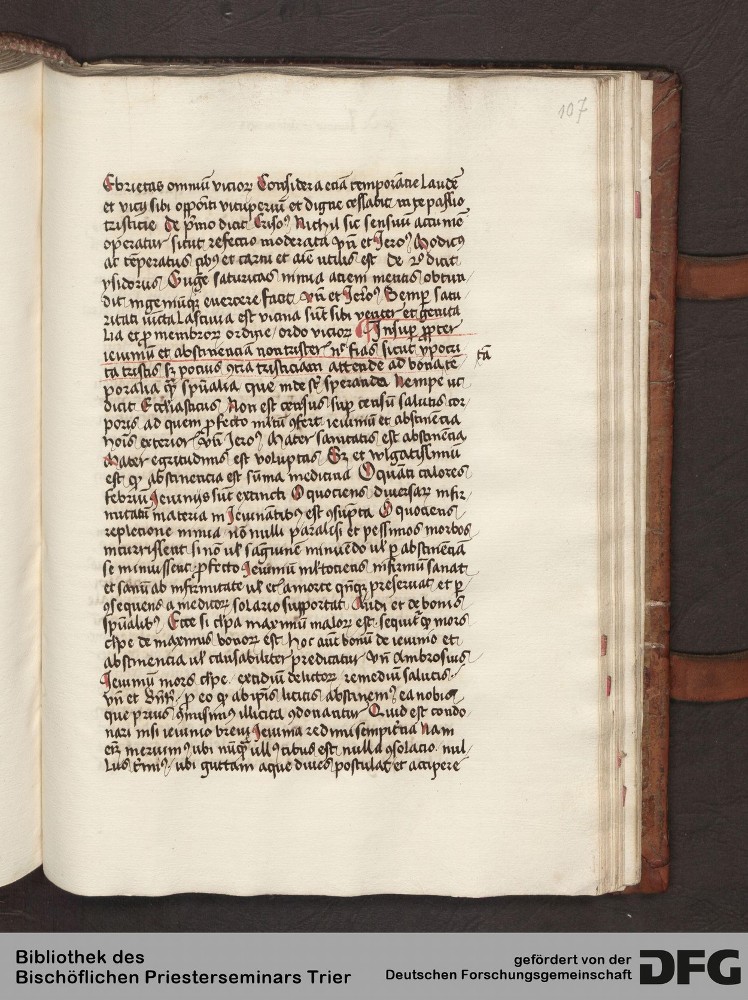 107
Ebrietas omniũ vicioꝝ Considera eciã temperãcie laudẽ
et vicij sibi oppõiti vituperiũ et digne cessabit in te passio
tristicie De pᵐo dicit Crisoꝰ Nichil sic sensuũ acumẽ
operatur sicut refectio moderata vñ et Jeroꝰ Modicꝰ
ac tẽperatus cibꝰ et carni et aĩe utilis est De 2º dicit
ysidorus Iugis saturitas nimia aciem mentis obtun
dit ingeniũqꝫ euertere facit vñ et Jeroꝰ Semꝑ satu
ritati iuncta lasciuia est vicina sũt sibi venter et genita
lia et ꝑ membroꝝ ordinẽ ordo vicioꝝ Insuꝑ ꝓpter
ieiuniũ et abstinenciã non tristeris nec fias sicut ypocri
ta tristis sꝫ pocius ꝯtra tristiciam attende ad bona tẽ
tã
poralia ꝙ spũalia que inde sũt speranda Nempe ut
dicit Ecclesiasticus Non est census suꝑ censũ salutis cor
poris ad quem ꝓfecto mltũ ꝯfert ieiuniũ et abstinẽcia
hoĩs exterioris vñ Jeroꝰ Mater sanitatis est abstinẽcia
Mater egritudinis est voluptas Et et wlgatissimũ
est ꝙ abstinencia est sũma medicina O quãti calores
febriũ Ieiunijs sũt extincti O quociens diuersaꝝ infir
mitatũ materia in Ieiunãtibꝰ est ꝯsũpta O quociens
replecione nimia nõnulli paralisi et pessimos morbos
incurrissent si nõ uł sãguinem minuẽdo uł ꝑ abstinẽciã
se minuissent ꝓfecto Ieiuniũ młtociens infirmũ sanat
et sanũ ab infirmitate uł et a morte qñqꝫ preseruat et ꝑ
ꝯsequens a medicoꝝ solario supportat Audi et de bonis
spũalibꝰ Ecce si cłpa maximũ maloꝝ est sequitur ꝙ mors
cłpe de maximis bonoꝝ est hoc aũt bonũ de ieiunio et
abstinencia uł causabiliter predicatur vñ Ambrosius
Ieiuniũ mors cłpe excidiũ delictoꝝ remediũ salutis
vñ et Bñh ꝑ eo ꝙ ab ip̃is licitis abstinemꝰ ea nobis
que prius ꝯmisimꝰ illicita ꝯdonantur Quid est condo
nari nisi ieiunio breui Ieiunia redimi sempitẽrna Nam
eñ meruimꝰ ubi nũqꝫ ullꝰ cibus est nulla ꝯsolacio nul
lus t̃minꝰ ubi guttam aque diues postulat et accipere
Bibliothek des
Bischöflichen Priesterseminars Trier
gefördert von der
Deutschen Forschungsgemeinschaft
DFG